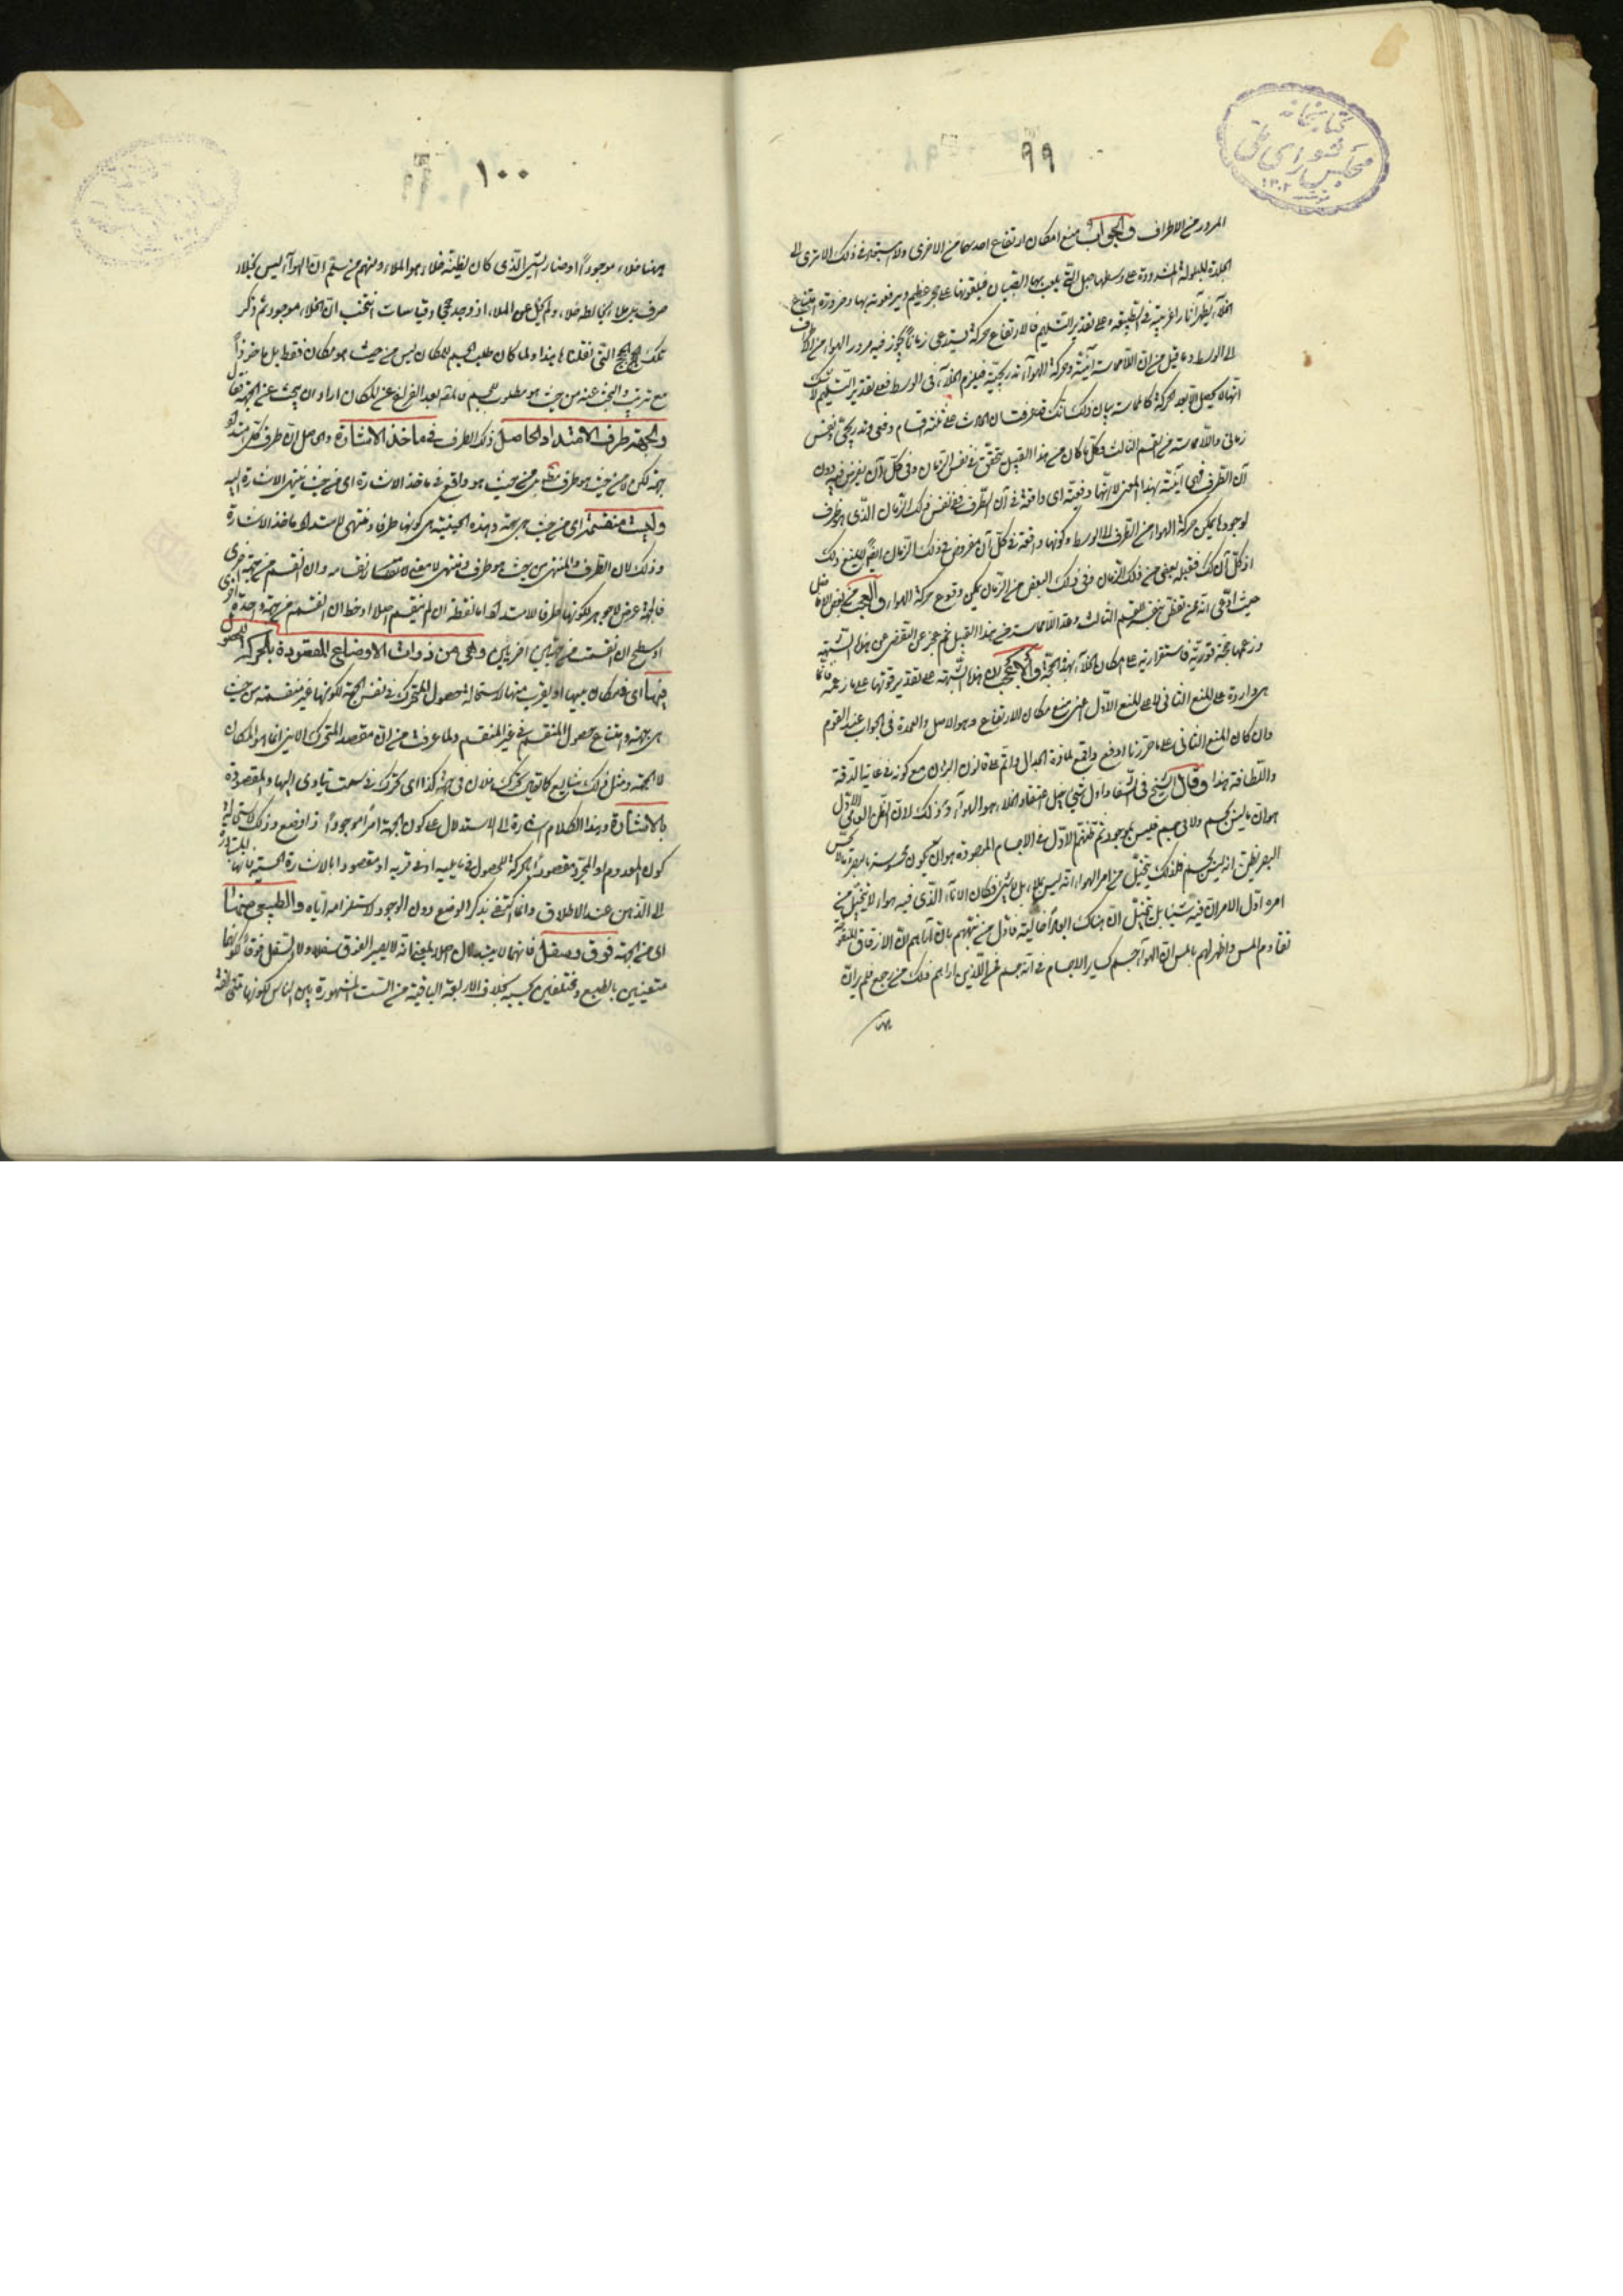 ٩٩
كتابخانه
مجلس شورای ملی
١٣٠٢
المرور من الاطراف والجواب منع امكان ارتفاع احدهما من الاخرى ولا استبعاد في ذلك الا ترى الى
الجلدة المبلولة المشدودة على وسطها حبل التي يلعب بها الصبيان فيلقونها على حجر عظيم ويرفعونه بها وضرورة امتناع
الخلاء يظهر آثارا غريبة في الطبيعة وعلى تقدير التسليم فالارتفاع حركة يستدعى زمانا يجوز فيه مرور الهواء من الاطراف
الى الوسط وما قيل من ان اللامماسة آنية وحركة الهواء تدريجية فيلزم الخلاء في الوسط فعلى تقدير التسليم
انها لا يحصل الا بعد الحركة كالمماسة بيان ذلك انك قد عرفت ان الحادث على ثلثة اقسام دفعى وتدريجى ونفس
زمانى واللامماسة من القسم الثالث وكل ما كان من هذا القبيل يتحقق في نفس الزمان وفى كل آن يفرض فيه دون
آن الطرف فهى آنية بهذا المعنى لا انها دفعية اى واقعة في آن الطرف ففى نفس ذلك الزمان الذى هو ظرف
لوجودها يمكن حركة الهواء من الطرف الى الوسط وكونها واقعة في كل آن مفروض في ذلك الزمان ايضا لا يمنع ذلك
اذ كل آن كك فقبله بعض من ذلك الزمان وفى ذلك البعض من الزمان يمكن وقوع حركة الهواء والعجب من بعض الافاضل
حيث ادعى انه ممن تفطن بتحقق القسم الثالث وعد اللامماسة من هذا القبيل ثم عجز عن التفصى عن هذه الشبهة
وزعمها حجة قوية فاستقر رايه على امكان الخلاء بهذه الحجة والاعجب ان هذه الشبهة على تقدير قوتها على ما زعمه فانما
هى واردة على المنع الثانى لا على المنع الاول اعنى منع مكان الارتفاع وهو الاصل والعمدة في الجواب عند القوم
وان كان المنع الثانى على ما حررنا ادفع واقع لمادة الجدال واتم على قانون البرهان مع كونه في غاية الدقة
واللطافة هذا وقال الشيخ في الشفا واول شىء خيل اعتقاد الخلاء هو الهواء وذلك لان الظن العامى الاول
هو ان ما ليس بجسم ولا في جسم فليس بموجود ثم ظنهم الاول في الاجسام الموجودة هو ان تكون محسوسة بالبصر وما لا يحس
بالبصر يظن انه ليس بجسم فلذلك يتخيل من امر الهواء انه ليس بملاء بل لا شىء فكان الاناء الذى فيه هواء لا يتخيل من
امره اول الامر ان فيه شيئا بل يتخيل ان هناك ابعادا خالية فاول من نبههم بان اراهم ان الازقاق المنفوخة
تقاوم المس واظهر لهم بالمس ان الهواء جسم كساير الاجسام في انه جسم فمن الذين اراهم ذلك من رجع فلم ير ان
١٠٠
ههنا خلاء موجودا اذ صار الشىء الذى كان يظنه خلاء هو الملاء ومنهم من سلم ان الهواء ليس بخلاء
صرف بل ملاء يخالطه خلاء ولم يخل عن الملاء اذ وجد حججا وقياسات انتجت ان الخلاء موجود ثم ذكر
تلك الحجج التى نقلناها هذا ولما كان طلب الجسم للمكان ليس من حيث هو مكان فقط بل ماخوذا
مع ترتيب والبحث عنه من حيث هو مطلوب للجسم فالمصه بعد الفراغ عن المكان اراد ان يبحث عن الجهة فقال
والجهة طرف الامتداد الحاصل ذلك الطرف في ماخذ الاشارة والحاصل ان طرف كل امتداد
جهة لكن لا من حيث هو طرف فقط بل من حيث هو واقع في ماخذ الاشارة اى من حيث ينتهى الاشارة اليه
وليست منقسمة اى من حيث هى جهة وهذه الحيثية هى كونها طرفا ومنتهى للامتداد وماخذ الاشارة
وذلك لان الطرف والمنتهى من حيث هو طرف ومنتهى لا معنى لانقسامه وان انقسم من جهة اخرى
فالجهة عرض لا جوهر لكونها طرفا للامتداد اما نقطة ان لم ينقسم اصلا او خط ان انقسمت من جهة واحدة اخرى
او سطح ان انقسمت من جهتين اخريين وهى من ذوات الاوضاع المقصودة بالحركة للحصول
فيها اى في مكان يليها او يقرب منها لاستحالة حصول المتحرك في نفس الجهة لكونها غير منقسمة من حيث
هى جهة وامتناع حصول المنقسم في غير المنقسم ولما عرفت من ان مقصد المتحرك الاينى انما هو المكان
لا الجهة ومثل ذلك شايع كما تقول تحرك فلان في جهة كذا اى تحرك في سمت يتادى اليها والمقصودة
بالاشارة وهذا الكلام اشارة الى الاستدلال على كون الجهة امرا موجودا ذا وضع وذلك لاستحالة
كون المعدوم او المجرد مقصودا بالحركة للحصول فيما يليه او في قربه او مقصودا بالاشارة الحسية فانها المتبادرة
الى الذهن عند الاطلاق وانما اكتفى بذكر الوضع دون الوجود لاستلزامه اياه والطبيعى منها
اى من الجهة فوق وسفل فانهما لا يتبدلان اصلا بمعنى انه لا يصير الفوق سفلا ولا السفل فوقا لكونهما
متعينين بالطبع ومختلفين بحسبه بخلاف الاربعة الباقية من الست المشهورة بين الناس لكونها متخالفة